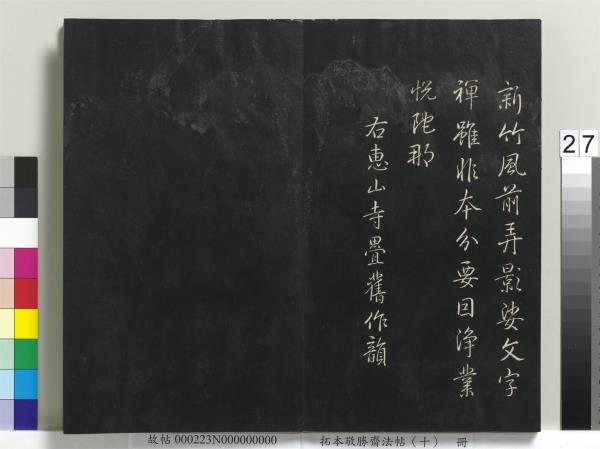 新竹風前弄影娑文字
禅雖非本分要因淨業
悦陀那
右惠山寺疊舊作韻
27
故帖 000223N000000000
拓本敬勝齋法帖（十） 冊